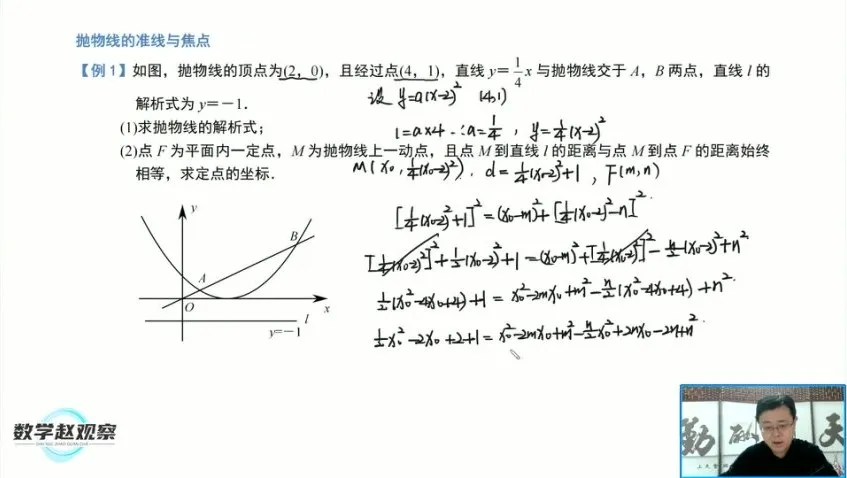 抛物线的准线与焦点
【例1】如图，抛物线的顶点为(2，0)，且经过点(4，1)，直线 y=\frac{1}{4}x 与抛物线交于 A，B 两点，直线 l 的
解析式为 y=-1.
设 y=a(x-2)² (4,1)
(1)求抛物线的解析式；
1=a×4 ∴a=1/4，y=1/4(x-2)²
(2)点 F 为平面内一定点，M 为抛物线上一动点，且点 M 到直线 l 的距离与点 M 到点 F 的距离始终
相等，求定点的坐标.
M(x₀, 1/4(x₀-2)²)，d=1/4(x₀-2)²+1，F(m,n)
[1/4(x₀-2)²+1]²=(x₀-m)²+[1/4(x₀-2)²-n]²
[1/4(x₀-2)²]²+1/2(x₀-2)²+1=(x₀-m)²+[1/4(x₀-2)²]²-n/2(x₀-2)²+n²
1/2(x₀²-4x₀+4)+1=x₀²-2mx₀+m²-n/2(x₀²-4x₀+4)+n²
1/2x₀²-2x₀+2+1=x₀²-2mx₀+m²-n/2x₀²+2nx₀-2n+n²
y
B
A
O
x
l
y=-1
数学赵观察
天
勤